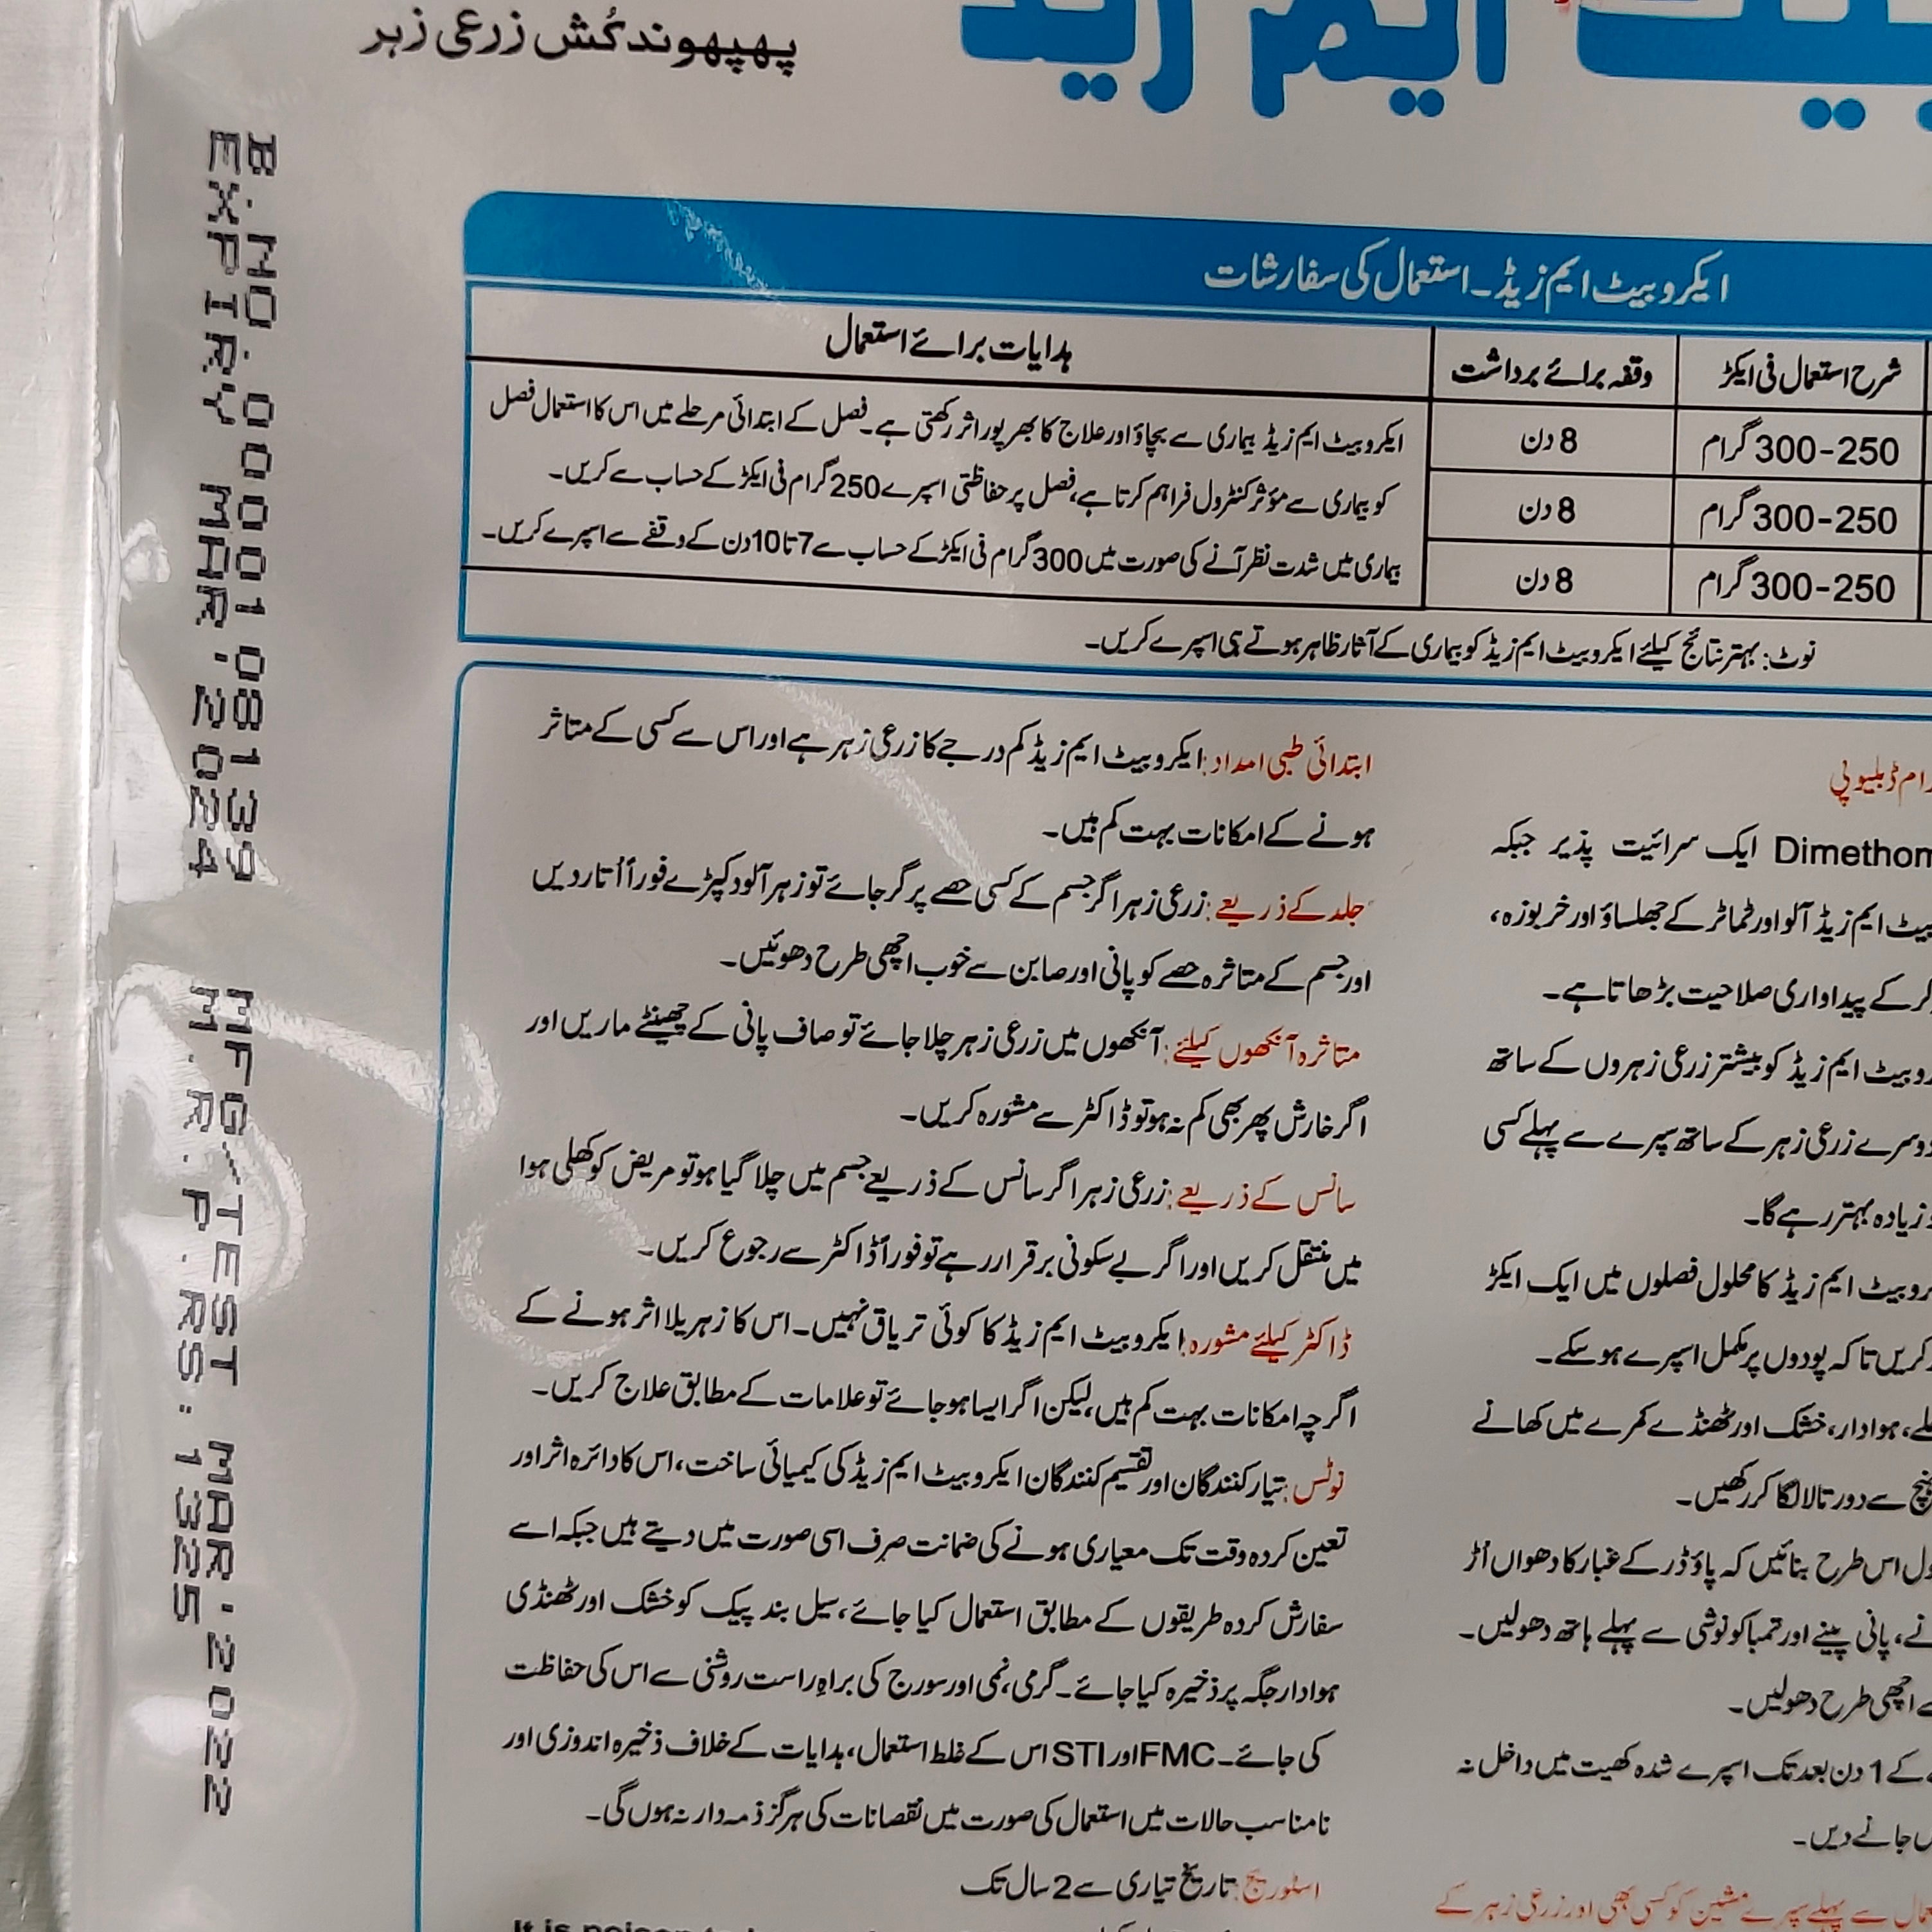 ایم زیڈ
پھپھوندکُش زرعی زہر
B.NO.0000108139 MFG/TEST MAR'2022
EXPIRY MAR'2024 M.R.P.RS:1325
ایکروبیٹ ایم زیڈ۔ استعمال کی سفارشات
شرح استعمال فی ایکڑ وقفہ برائے برداشت ہدایات برائے استعمال
250-300 گرام 8 دن
250-300 گرام 8 دن
250-300 گرام 8 دن
ایکروبیٹ ایم زیڈ بیماری سے بچاؤ اور علاج کا بھرپور اثر رکھتی ہے۔ فصل کے ابتدائی مرحلے میں اس کا استعمال فصل
کو بیماری سے مؤثر کنٹرول فراہم کرتا ہے، فصل پر حفاظتی اسپرے 250 گرام فی ایکڑ کے حساب سے کریں۔
بیماری میں شدت نظر آنے کی صورت میں 300 گرام فی ایکڑ کے حساب سے 7 تا 10 دن کے وقفے سے اسپرے کریں۔
نوٹ: بہتر نتائج کیلئے ایکروبیٹ ایم زیڈ کو بیماری کے آثار ظاہر ہوتے ہی اسپرے کریں۔
ڈبلیو پی
ایک سرائیت پذیر جبکہ
ایم زیڈ آلو اور ٹماٹر کے جھلساؤ اور خربوزہ،
کے پیداواری صلاحیت بڑھاتا ہے۔
ایم زیڈ کو بیشتر زرعی زہروں کے ساتھ
دوسرے زرعی زہر کے ساتھ سپرے سے پہلے کسی
زیادہ بہتر رہے گا۔
ایم زیڈ کا محلول فصلوں میں ایک ایکڑ
کریں تاکہ پودوں پر مکمل اسپرے ہو سکے۔
ہوادار، خشک اور ٹھنڈے کمرے میں کھانے
سے دور تالا لگا کر رکھیں۔
اس طرح بنائیں کہ پاؤڈر کے غبار کا دھواں اُڑ
پانی پینے اور تمباکو نوشی سے پہلے ہاتھ دھولیں۔
اچھی طرح دھولیں۔
کے 1 دن بعد تک اسپرے شدہ کھیت میں داخل نہ
جانے دیں۔
سے پہلے سپرے مشین کو کسی بھی اور زرعی زہر کے
ابتدائی طبی امداد: ایکروبیٹ ایم زیڈ کم درجے کا زرعی زہر ہے اور اس سے کسی کے متاثر
ہونے کے امکانات بہت کم ہیں۔
جلد کے ذریعے: زرعی زہر اگر جسم کے کسی حصے پر گر جائے تو زہر آلود کپڑے فوراً اُتار دیں
اور جسم کے متاثرہ حصے کو پانی اور صابن سے خوب اچھی طرح دھوئیں۔
متاثرہ آنکھوں کیلئے: آنکھوں میں زرعی زہر چلا جائے تو صاف پانی کے چھینٹے ماریں اور
اگر خارش پھر بھی کم نہ ہو تو ڈاکٹر سے مشورہ کریں۔
سانس کے ذریعے: زرعی زہر اگر سانس کے ذریعے جسم میں چلا گیا ہو تو مریض کو کھلی ہوا
میں منتقل کریں اور اگر بے سکونی برقرار رہے تو فوراً ڈاکٹر سے رجوع کریں۔
ڈاکٹر کیلئے مشورہ: ایکروبیٹ ایم زیڈ کا کوئی تریاق نہیں۔ اس کا زہریلا اثر ہونے کے
اگرچہ امکانات بہت کم ہیں، لیکن اگر ایسا ہو جائے تو علامات کے مطابق علاج کریں۔
نوٹس: تیار کنندگان اور تقسیم کنندگان ایکروبیٹ ایم زیڈ کی کیمیائی ساخت، اس کا دائرہ اثر اور
تعین کردہ وقت تک معیاری ہونے کی ضمانت صرف اسی صورت میں دیتے ہیں جبکہ اسے
سفارش کردہ طریقوں کے مطابق استعمال کیا جائے، سیل بند پیک کو خشک اور ٹھنڈی
ہوادار جگہ پر ذخیرہ کیا جائے۔ گرمی، نمی اور سورج کی براہِ راست روشنی سے اس کی حفاظت
کی جائے۔ FMC اور STI اس کے غلط استعمال، ہدایات کے خلاف ذخیرہ اندوزی اور
نامناسب حالات میں استعمال کی صورت میں نقصانات کی ہرگز ذمہ دار نہ ہوں گی۔
اسٹوریج: تاریخ تیاری سے 2 سال تک
It is poison